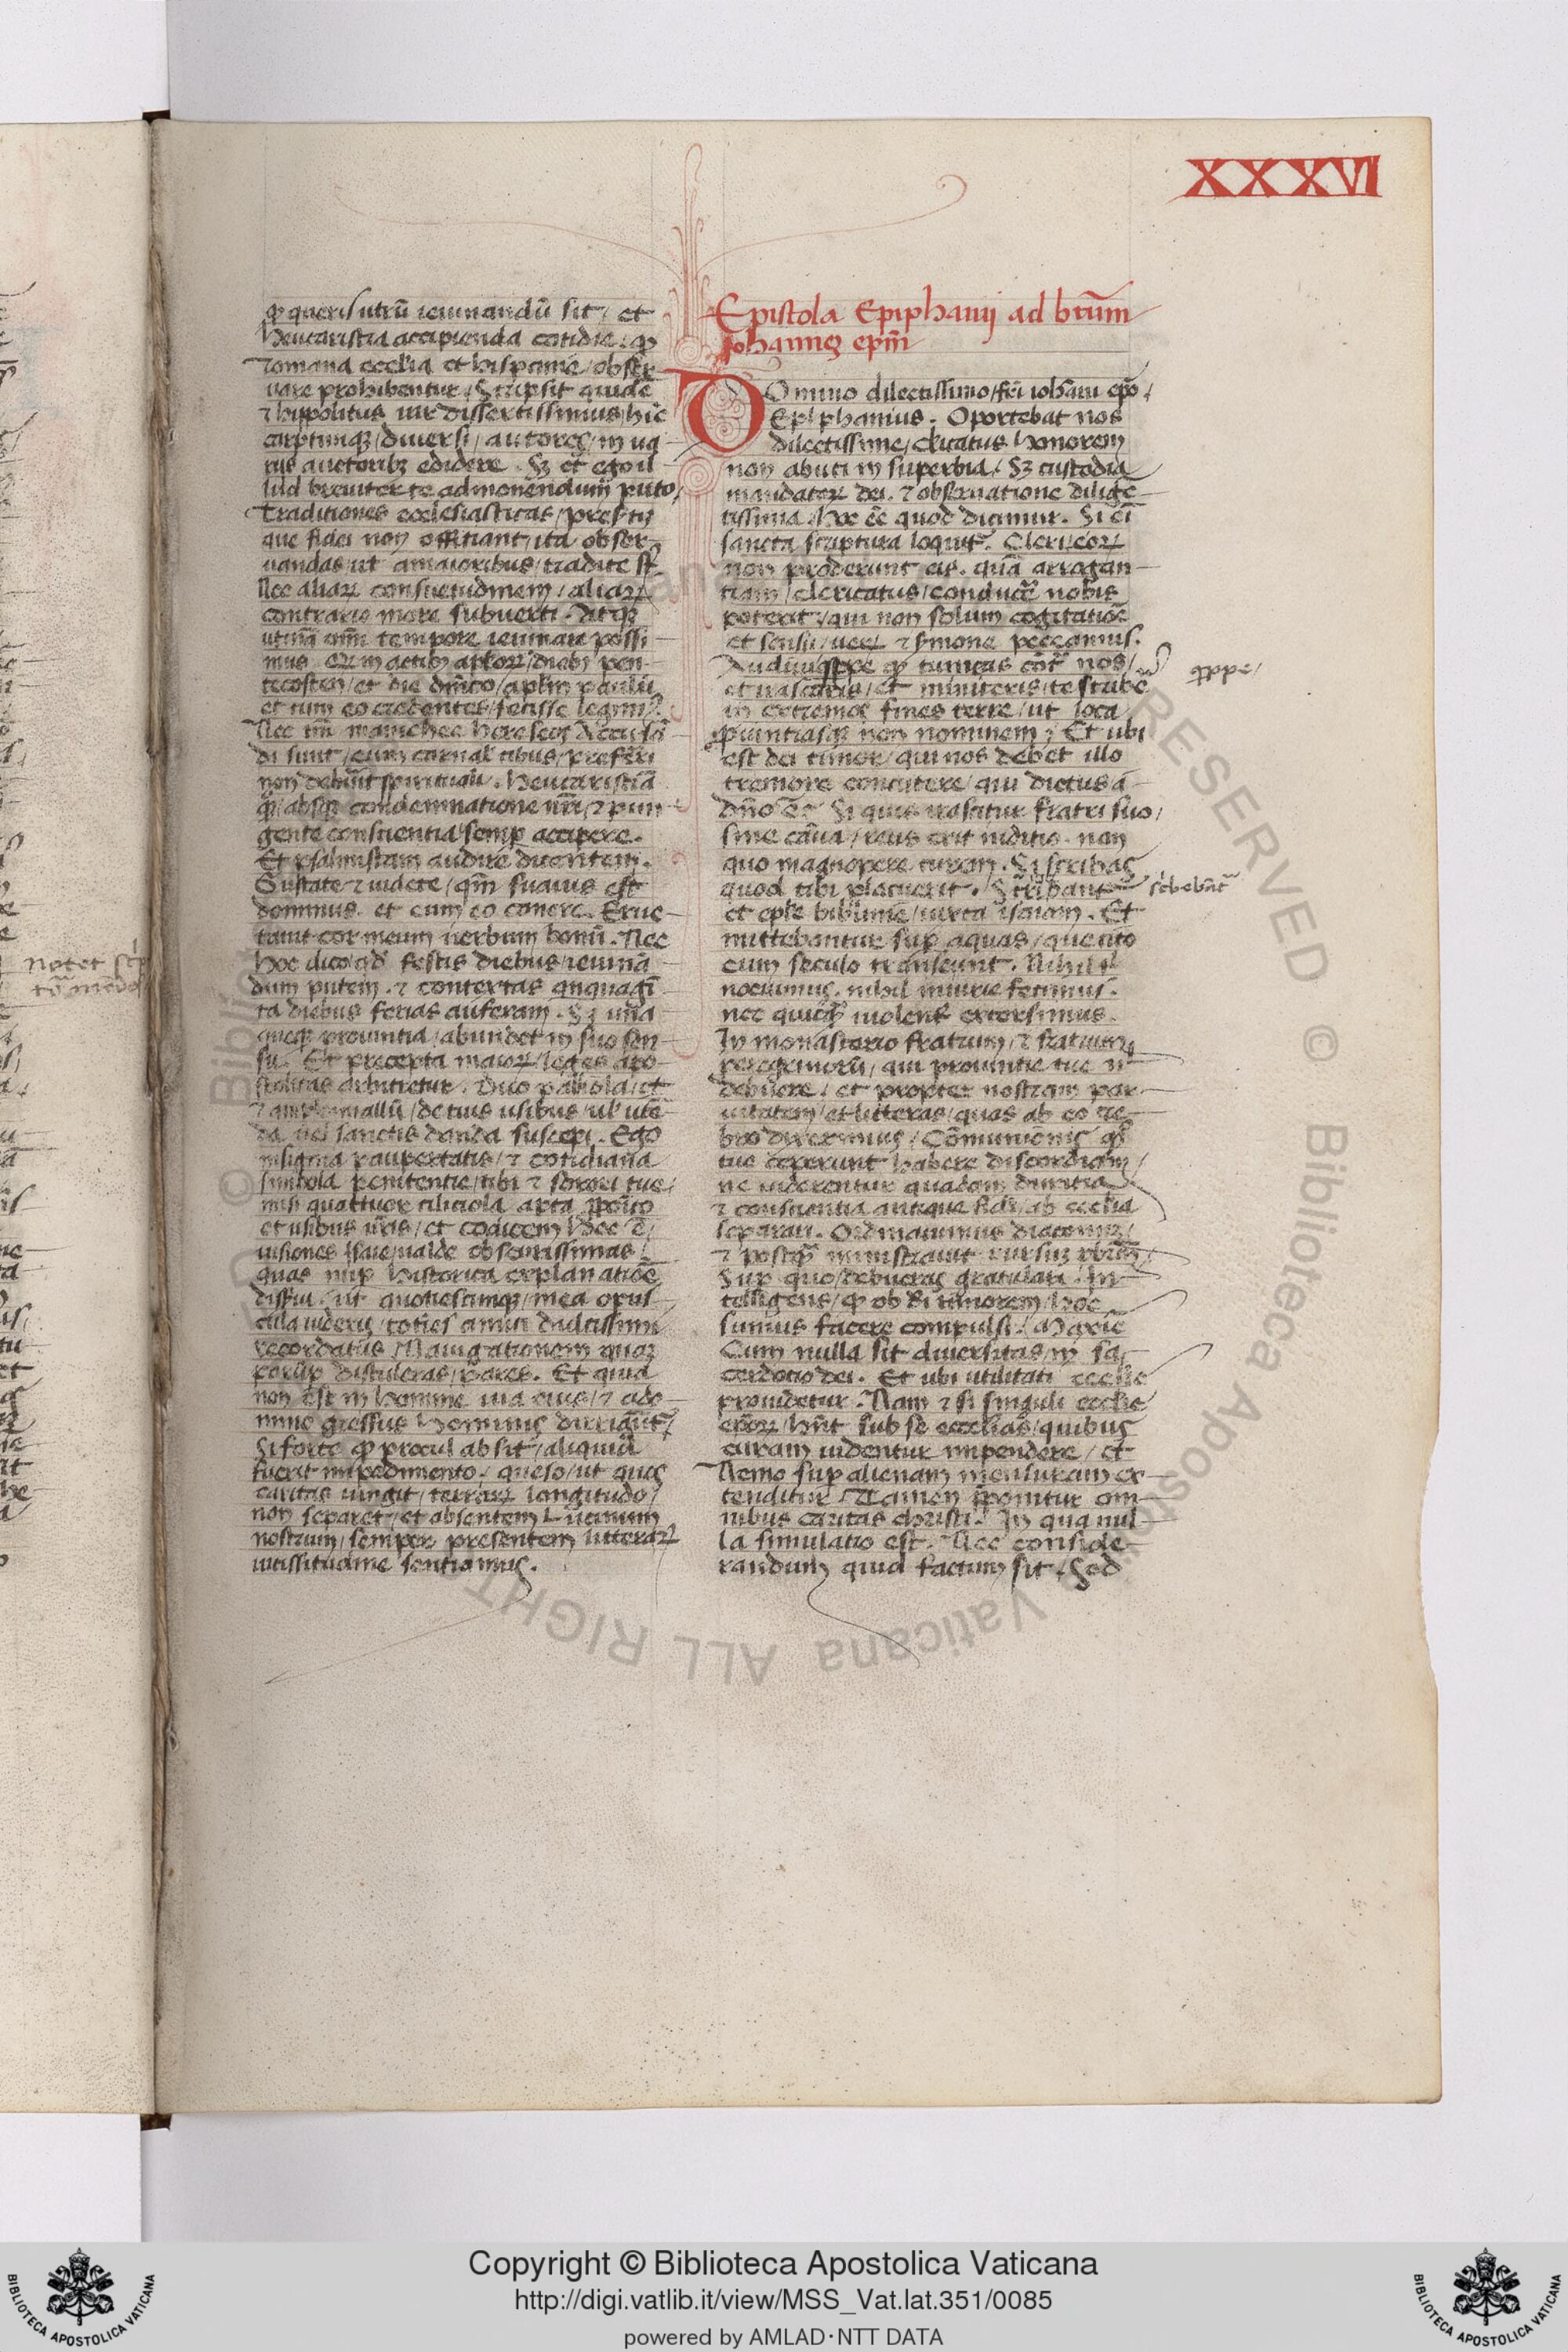 XXXVI
ꝙ queris utrū ieiunandū sit / et
heucaristia accipienda cotidie / ꝙ
romana ecclīa et hispanie / obser
uare prohibentur / Scripsit quidē
⁊ hippolitus uir dissertissimus / hic
carptimqꝫ / diuersi / autores / in ua
riis auctoribꝫ edidere . Sꝫ et ego il
lud breuiter te admonendum puto /
Traditiones ecclesiasticas / presertī
que fidei non offitiant / ita obser
uandas / ut amaioribus / tradite sт̄
Nec aliaꝝ consuetudinem / aliaꝝ
contrario more subuerti . Atqꝫ
utinā omī tempore ieiunare possi
mus qꝛ in actibꝫ aptoꝝ / diebꝫ pen
tecosten / et die dn̄ico / aplm paulū
et cum eo credentes / fecisse legimꝰ
Nec tn̄ manichee hereseos accusā
di sunt / cum carnalis cibus / preferri
non debuit spirituali . Heucaristiā
qꝫ / absqꝫ condemnatione nr̄i / ⁊ pun
gente conscientia / semꝑ accipere .
Et psalmistam audire dicentem .
Gustate ⁊ uidete / qm̄ suauis est
dominus . et cum eo canere . Eruc
tauit cor meum uerbum bonū . Nec
hoc dico qd̄ festis diebus / ieiunā
dum putem . ⁊ contextas qnquagī
ta diebus ferias auferam . Sꝫ una
queqꝫ prouintia / abundet in suo sen
su . Et precepta maioꝝ / leges apo
stolicas arbitretur . Duo palliola / et
⁊ amphimallū / de tuis usibus / ul' utē
da uel sanctis danda suscepi . Ego
insignia paupertatis / ⁊ cotidiana
simbola penitentie / tibi ⁊ sorori tue /
misi quattuor ciliciola apta ꝓpoīto
et usibus ur̄is / et codicem / hoc ē /
uisiones isaie / ualde obscurissimas /
quas nuꝑ historica explanatiōe
disserui / ut quotiescumqꝫ / mea opus
cula uideris / toties amici dulcissimi
recordatus / Nauigationem quaꝫ
parūꝑ distuleras / pares . Et quia
non est in homine uia eius / ⁊ a do
mino gressus hominis diriguntꝛ
Si forte ꝙ procul ab sit / aliquid
fuerit impedimento . queso / ut quos
caritas iungit / terraꝝ longitudo /
non separet / et absentem Lucinum
nostrum / semper presentem litteraꝝ
uicissitudine sentiamus .
Epistola Epiphanij ad btūm
Johannē epm̄
DOmino dilectissimo / fr̄i iohāni epō .
Epiphanius . Oportebat nos
dilectissime / clicatus honorem
non abuti in superbia . Sꝫ custodia
mandatoꝝ dei . ⁊ obseruatione diligē
tissima / Hoc eē quod dicimur . Si eī
sancta scriptura loquitꝛ . Clericoꝝ
non proderunt eis . quā arrogan
tiam / clericatus / conducē nobis
poterit / qui non solum cogitatiōe
et sensu / ueꝝ ⁊ sermone peccamus .
Audiui quippe ꝙ tumeas cōtͣ nos /
et irascaris / et miniteris / te scribē
in extremos fines terre / ut loca
ꝓuintiasqꝫ non nominem ; Et ubi
est dei timor / qui nos debet illo
tremore concutere / qui dictus a
dn̄o ē : Si quis irascitur fratri suo /
sine cāua / reus erit iuditio . non
quo magnopere curem . Si scribas
quod tibi placuerit . Scribant̄
et eple bibline / iuxta isaiam . Et
mittebantur suꝑ aquas / que cito
cum seculo transeunt . Nihil ti
nocuimus . nihil iniurie fecimus .
nec quicqͣ uiolent extorsimus .
In monasterio fratrum / ⁊ fratrum
peregrinorū / qui prouintie tue n
debuere / et propter nostram par
uitatem / et litteras / quas ab eo re
bro direximus / Cōmunionis qͣ
tue ceperunt habere discordiam /
ne uiderentur quadam duritia
⁊ conscientia antique fidei / ab ecclīa
separari . Ordinauimus diaconum /
⁊ postqͣ ministrauit rursus pbr̄m /
Suꝑ quo / debueras gratulari . In
telligens / ꝙ ob dei timorem / hoc
sumus facere compulsi . Maxie
Cum nulla sit diuersitas / in sa
cerdotio dei . Et ubi utilitati ecclīe
prouidetur . Nam ⁊ si singuli ecclīe
ep̄oꝝ / hn̄t sub se ecclesias / quibus
curam uidentur impendere / et
Nemo suꝑ alienam mensuram ex
tenditur . Tamen ꝓponitur om
nibus caritas christi . In qua nul
la simulatio est . Nec conside
randum quid factum sit / Sed
ꝗppe /
scͥbebāntꝛ
Copyright © Biblioteca Apostolica Vaticana
http://digi.vatlib.it/view/MSS_Vat.lat.351/0085
powered by AMLAD·NTT DATA
BIBLIOTECA APOSTOLICA VATICANA
BIBLIOTECA APOSTOLICA VATICANA